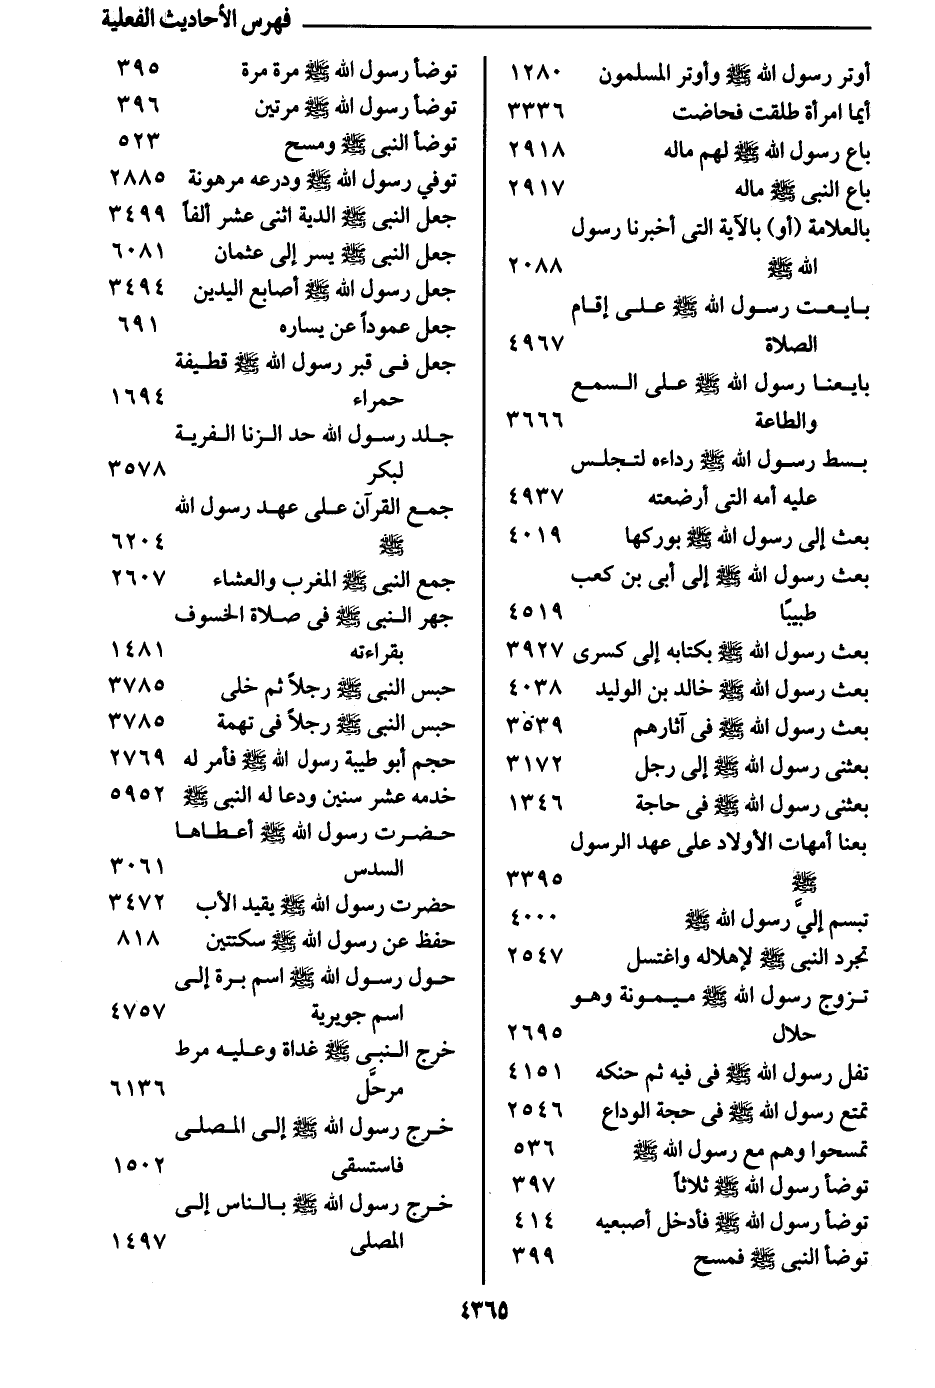 فهرس الأحاديث الفعلية
أوتر رسول الله ﷺ وأوتر المسلمون ١٢٨٠
أيما امرأة طلقت فحاضت ٣٣٣٦
باع رسول الله ﷺ لهم ماله ٢٩١٨
باع النبى ﷺ ماله ٢٩١٧
بالعلامة (أو) بالآية التى أخبرنا رسول
الله ﷺ ٢٠٨٨
بايعت رسول الله ﷺ على إقام
الصلاة ٤٩٦٧
بايعنا رسول الله ﷺ على السمع
والطاعة ٣٦٦٦
بسط رسول الله ﷺ رداءه لتجلس
عليه أمه التى أرضعته ٤٩٣٧
بعث إلى رسول الله ﷺ بوركها ٤٠١٩
بعث رسول الله ﷺ إلى أبى بن كعب
طبيبًا ٤٥١٩
بعث رسول الله ﷺ بكتابه إلى كسرى ٣٩٢٧
بعث رسول الله ﷺ خالد بن الوليد ٤٠٣٨
بعث رسول الله ﷺ فى آثارهم ٣٥٣٩
بعثنى رسول الله ﷺ إلى رجل ٣١٧٢
بعثنى رسول الله ﷺ فى حاجة ١٣٤٦
بعنا أمهات الأولاد على عهد الرسول
ﷺ ٣٣٩٥
تبسم إليَّ رسول الله ﷺ ٤٠٠٠
تجرد النبى ﷺ لإهلاله واغتسل ٢٥٤٧
تزوج رسول الله ﷺ ميمونة وهو
حلال ٢٦٩٥
تفل رسول الله ﷺ فى فيه ثم حنكه ٤١٥١
تمتع رسول الله ﷺ فى حجة الوداع ٢٥٤٦
تمسحوا وهم مع رسول الله ﷺ ٥٣٦
توضأ رسول الله ﷺ ثلاثاً ٣٩٧
توضأ رسول الله ﷺ فأدخل أصبعيه ٤١٤
توضأ النبى ﷺ فمسح ٣٩٩
توضأ رسول الله ﷺ مرة مرة ٣٩٥
توضأ رسول الله ﷺ مرتين ٣٩٦
توضأ النبى ﷺ ومسح ٥٢٣
توفي رسول الله ﷺ ودرعه مرهونة ٢٨٨٥
جعل النبى ﷺ الدية اثنى عشر ألفاً ٣٤٩٩
جعل النبى ﷺ يسر إلى عثمان ٦٠٨١
جعل رسول الله ﷺ أصابع اليدين ٣٤٩٤
جعل عموداً عن يساره ٦٩١
جعل فى قبر رسول الله ﷺ قطيفة
حمراء ١٦٩٤
جلد رسول الله حد الزنا الفرية
لبكر ٣٥٧٨
جمع القرآن على عهد رسول الله
ﷺ ٦٢٠٤
جمع النبى ﷺ المغرب والعشاء ٢٦٠٧
جهر النبى ﷺ فى صلاة الخسوف
بقراءته ١٤٨١
حبس النبى ﷺ رجلاً ثم خلى ٣٧٨٥
حبس النبى ﷺ رجلاً فى تهمة ٣٧٨٥
حجم أبو طيبة رسول الله ﷺ فأمر له ٢٧٦٩
خدمه عشر سنين ودعا له النبى ﷺ ٥٩٥٢
حضرت رسول الله ﷺ أعطاها
السدس ٣٠٦١
حضرت رسول الله ﷺ يقيد الأب ٣٤٧٢
حفظ عن رسول الله ﷺ سكتتين ٨١٨
حول رسول الله ﷺ اسم برة إلى
اسم جويرية ٤٧٥٧
خرج النبى ﷺ غداة وعليه مرط
مرحَّل ٦١٣٦
خرج رسول الله ﷺ إلى المصلى
فاستسقى ١٥٠٢
خرج رسول الله ﷺ بالناس إلى
المصلى ١٤٩٧
٤٣٦٥